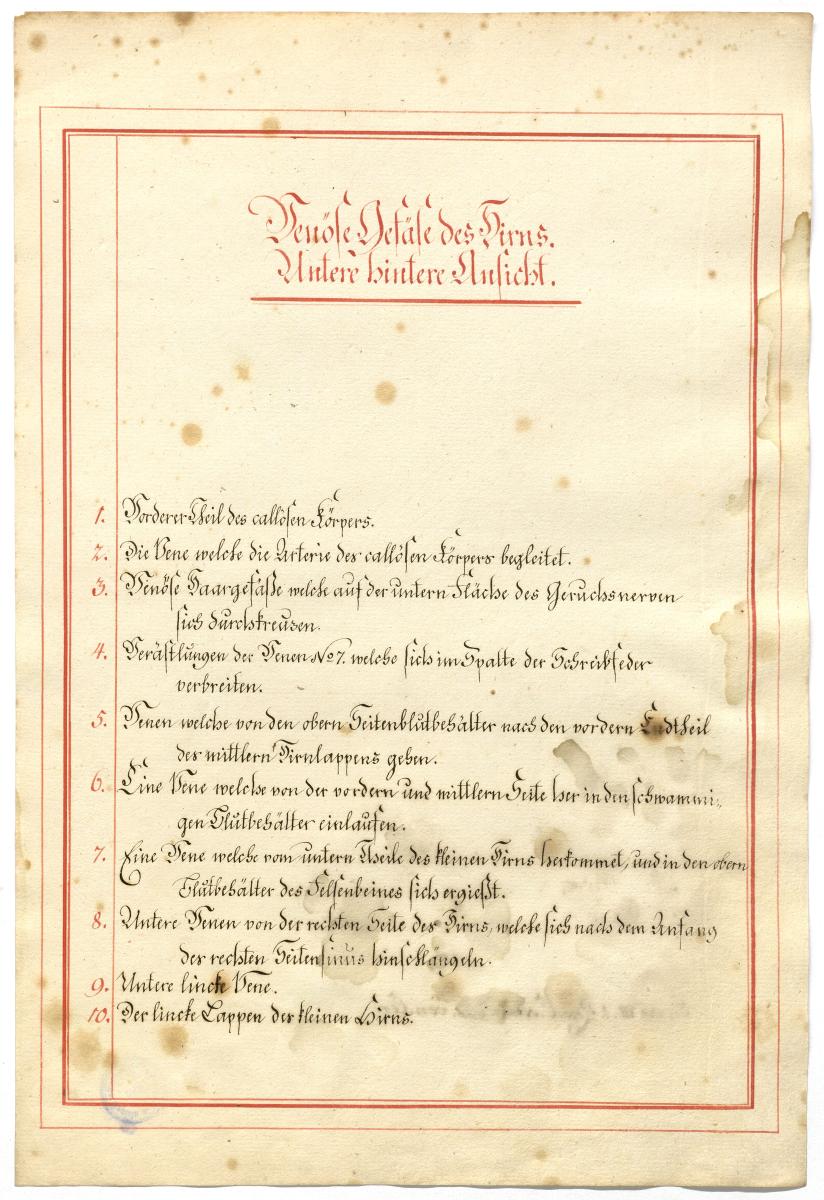 Venöse Gefäse des Hirns.
Untere hintere Ansicht.
1. Vorderer Theil des callösen Körpers.
2. Die Vene welche die Arterie des callösen Körpers begleitet.
3. Venöse Haargefäße welche auf der untern Fläche des Geruchsnerven
sich durchkreusen.
4. Verästlungen der Venen No 7. welche sich im Spalte der Schreibfeder
verbreiten.
5. Venen welche von den obern Seitenblutbehälter nach den vordern Endtheil
des mittlern Hirnlappens gehen.
6. Eine Vene welche von der vordern und mittlern Seite her in den schwammi-
gen Blutbehälter einlaufen.
7. Eine Vene welche vom untern Theile des kleinen Hirns herkommet, und in den obern
Blutbehälter des Felsenbeines sich ergießt.
8. Untere Venen von der rechten Seite des Hirns, welche sich nach dem Anfang
des rechten Seitensinus hinschlängeln.
9. Untere lincke Vene.
10. Der lincke Lappen des kleinen Hirns.